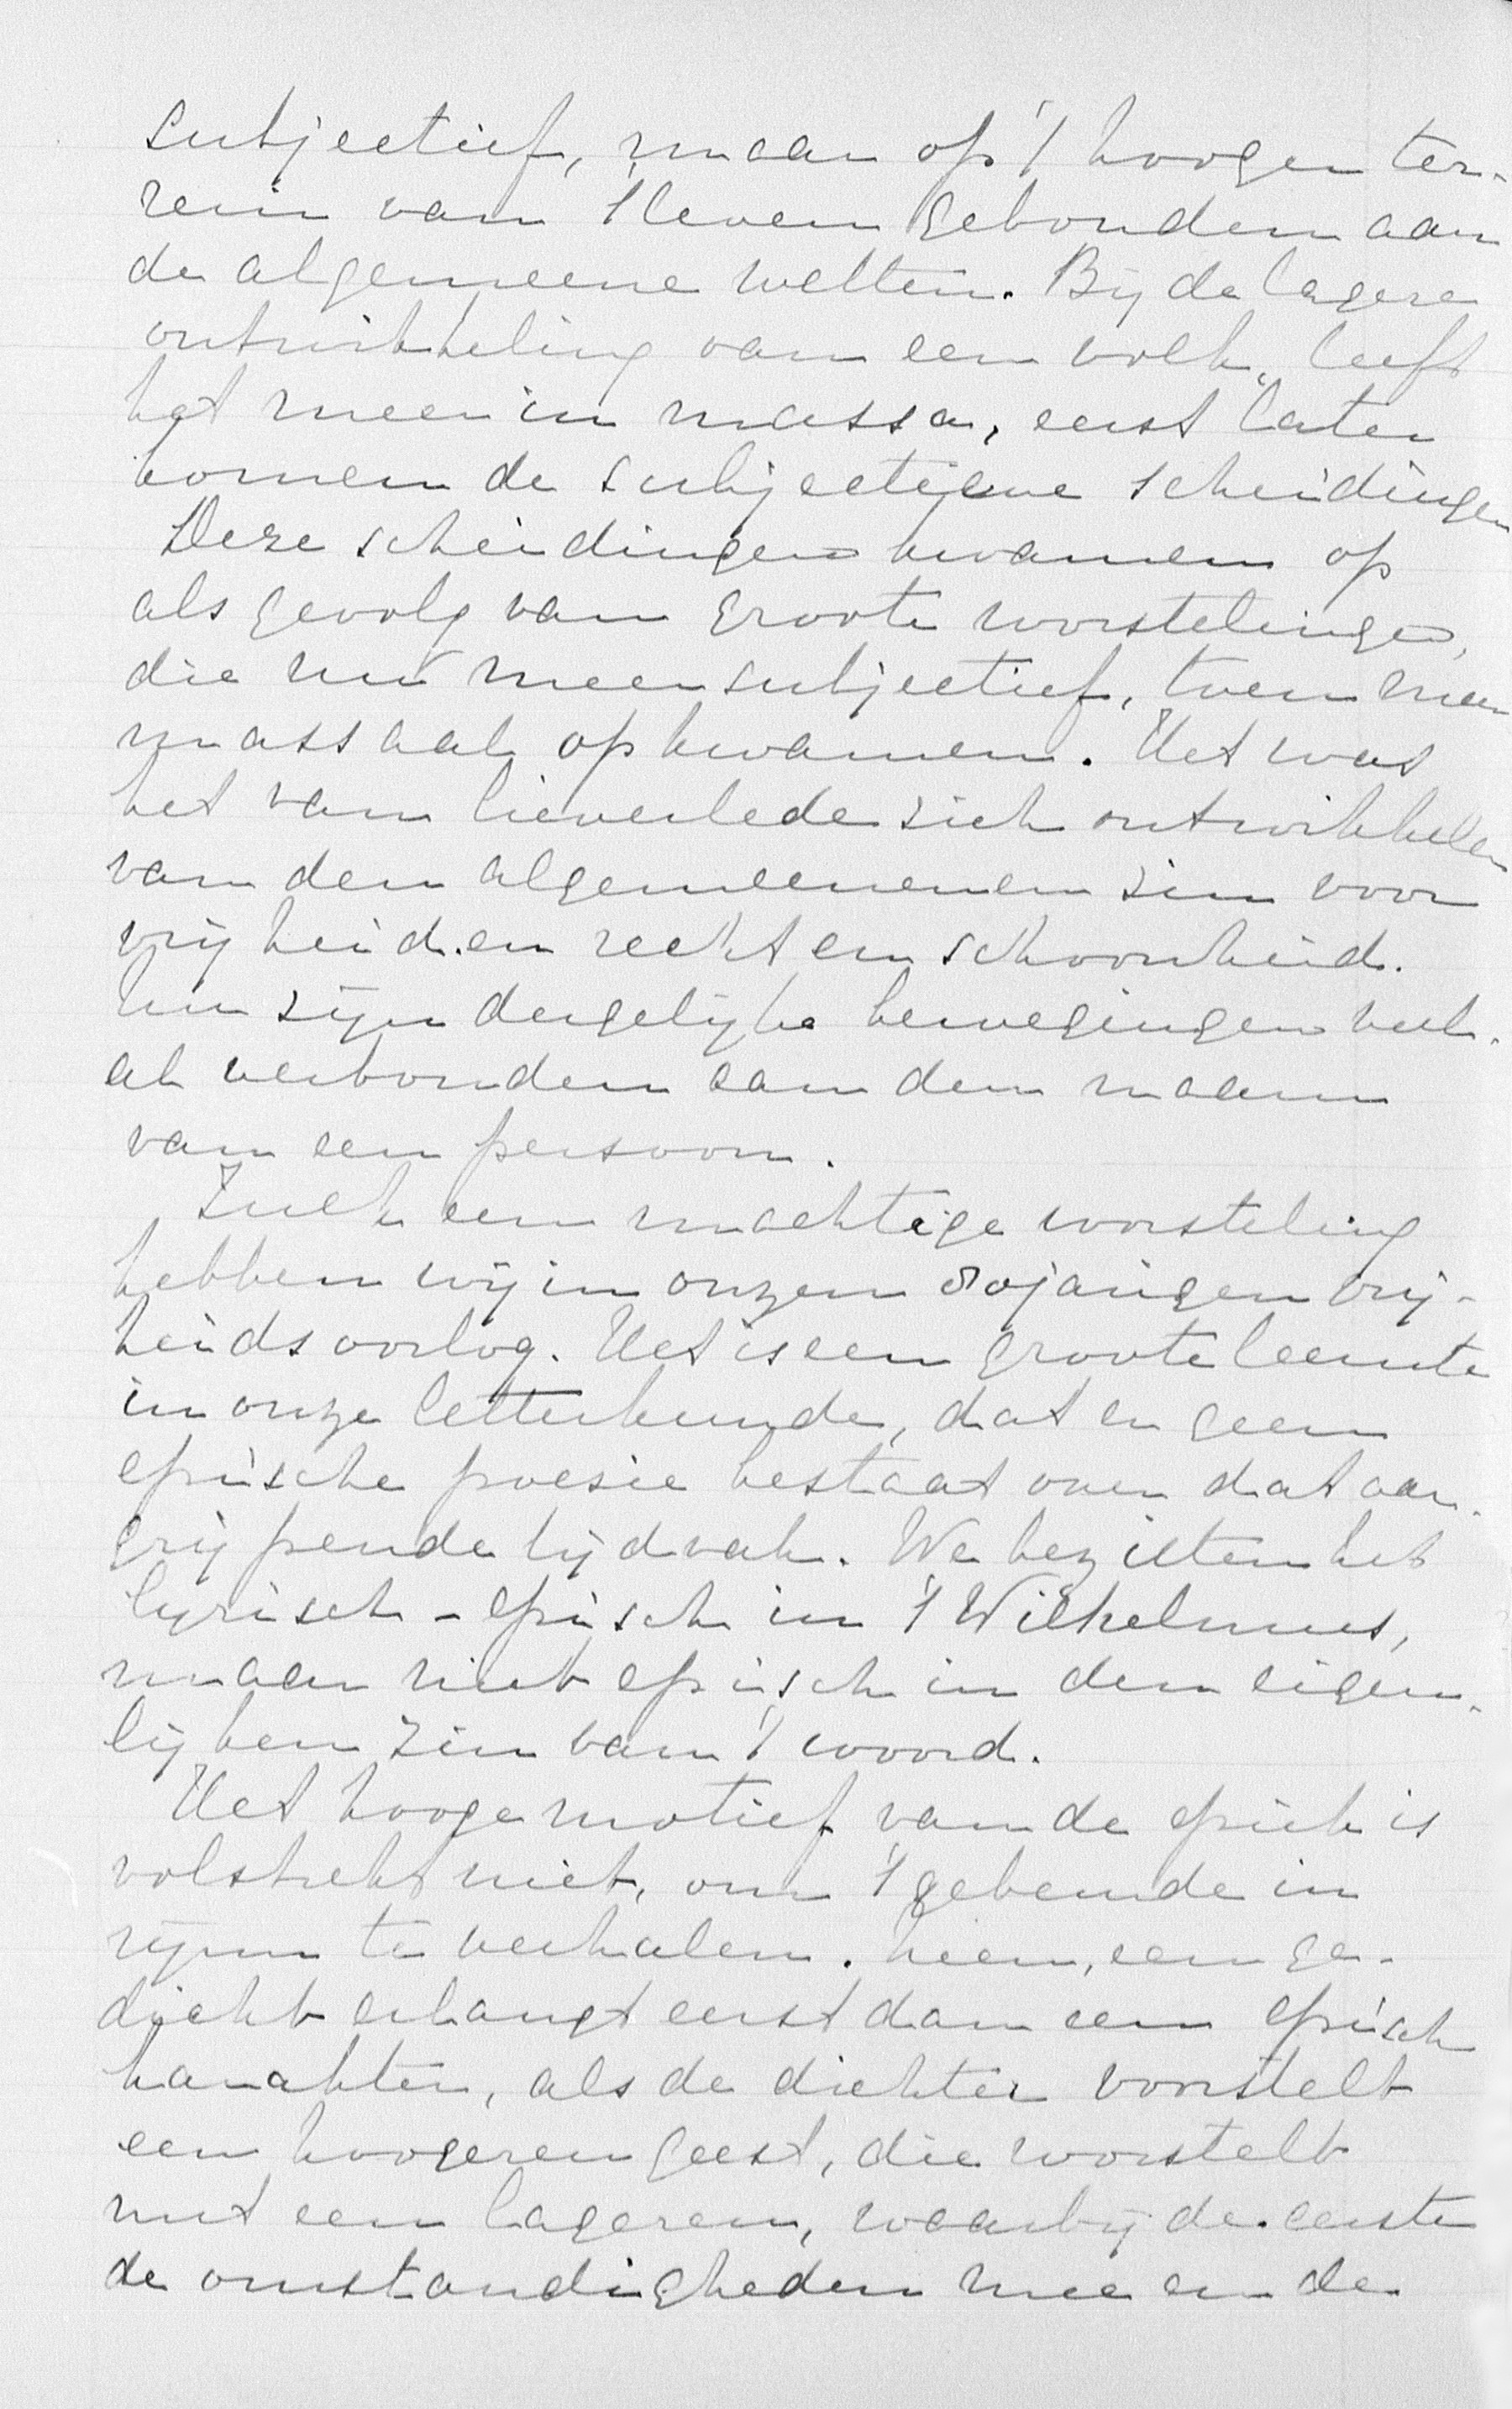 subjectief, maar op 't hoogen ter-
rein van 't leven gebonden aan
de algemeene wetten. Bij de lagere
ontwikkeling van een volk, leeft
het meer in massa, eerst later
komen de subjectieve scheidingen
Deze scheidingen kwamen op
als gevolg van groote worstelingen,
die nu meer subjectief, toen meer
massaal opkwamen. Het was
het van lieverlede zich ontwikkelen
van den algemeenenen zin voor
vrijheid en recht en schoonheid.
Nu zijn dergelijke bewegingen veel-
al verbonden aan den naam
van een persoon.
Zulk een machtige worsteling
hebben wij in onzen 80jarigen vrij-
heidsoorlog. Het is een groote leemte
in onze letterkunde, dat er geen
epische poesie bestaat over dat aan-
grijpende tijdvak. We bezitten het
lyrisch-episch in 't Wilhelmus,
maar niet episch in den eigen-
lijken zin van 't woord.
Het hooge motief van de epiek is
volstrekt niet, om 't gebeurde in
rijm te verhalen. Neen, een ge-
dicht erlangt eerst dan een episch
karakter, als de dichter voorstelt
een hoogeren geest, die worstelt
met een lageren, waarbij de eerste
de omstandigheden mee en de